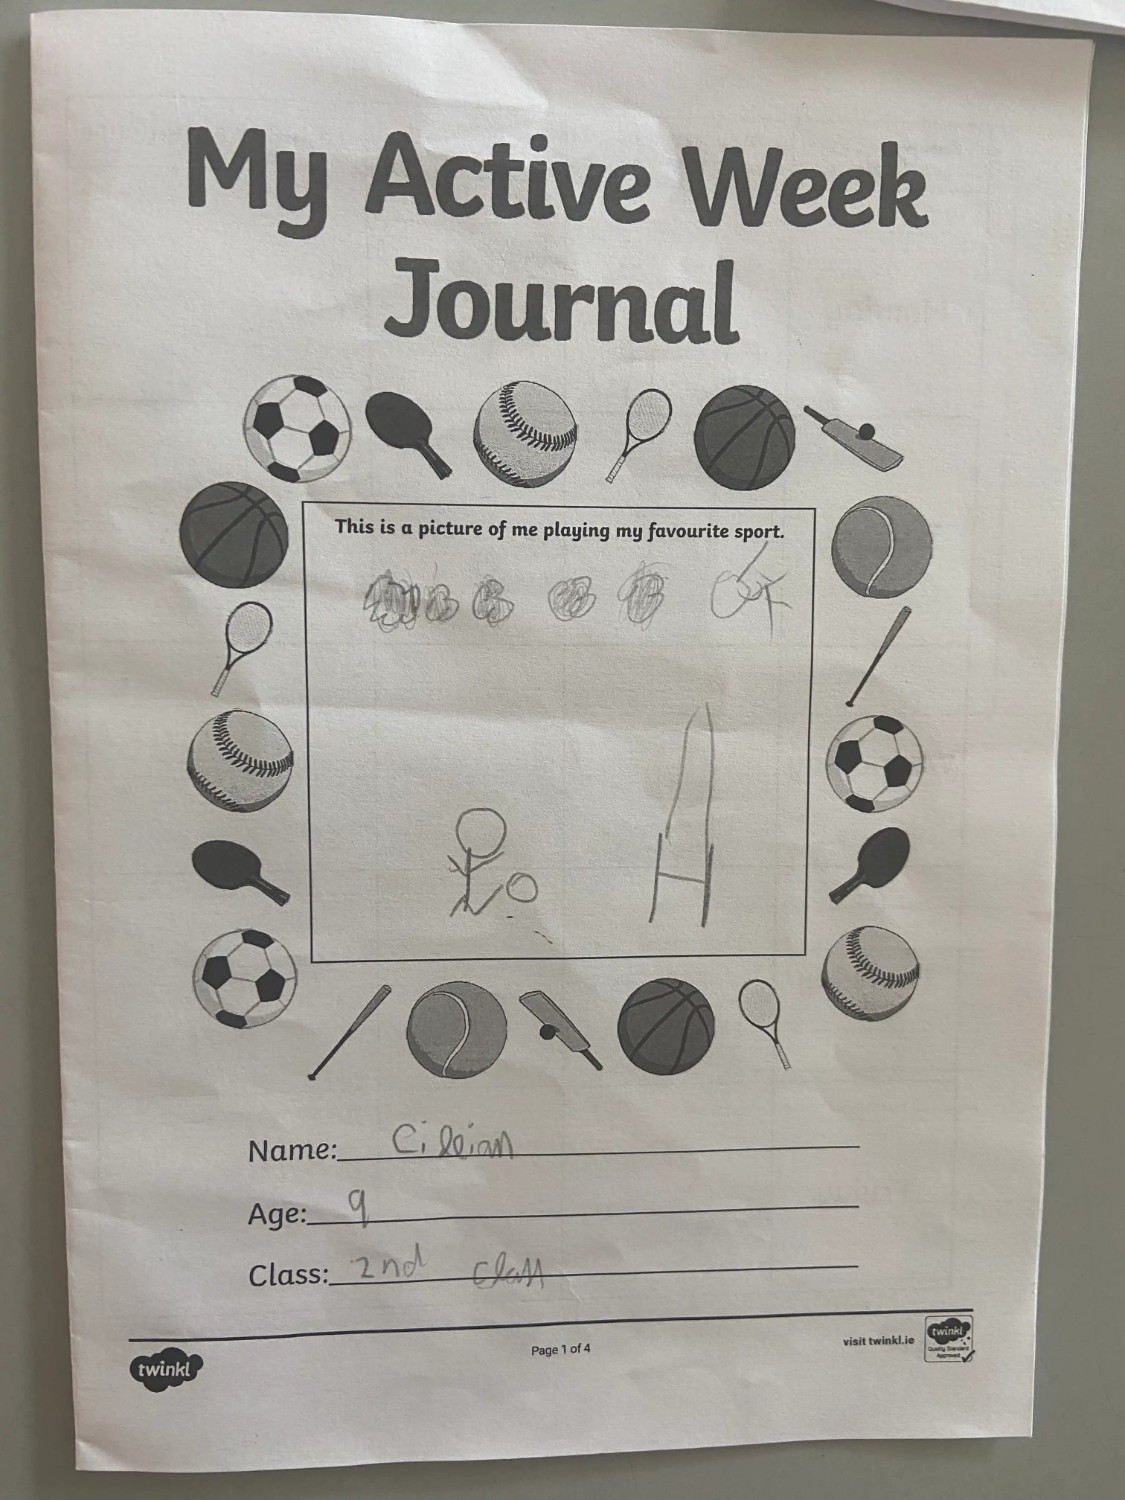 My Active Week
Journal
This is a picture of me playing my favourite sport.
Name: Cillian
Age: 9
Class: 2nd Class
twinkl
Page 1 of 4
visit twinkl.ie
twinkl
Quality Standard
Approved